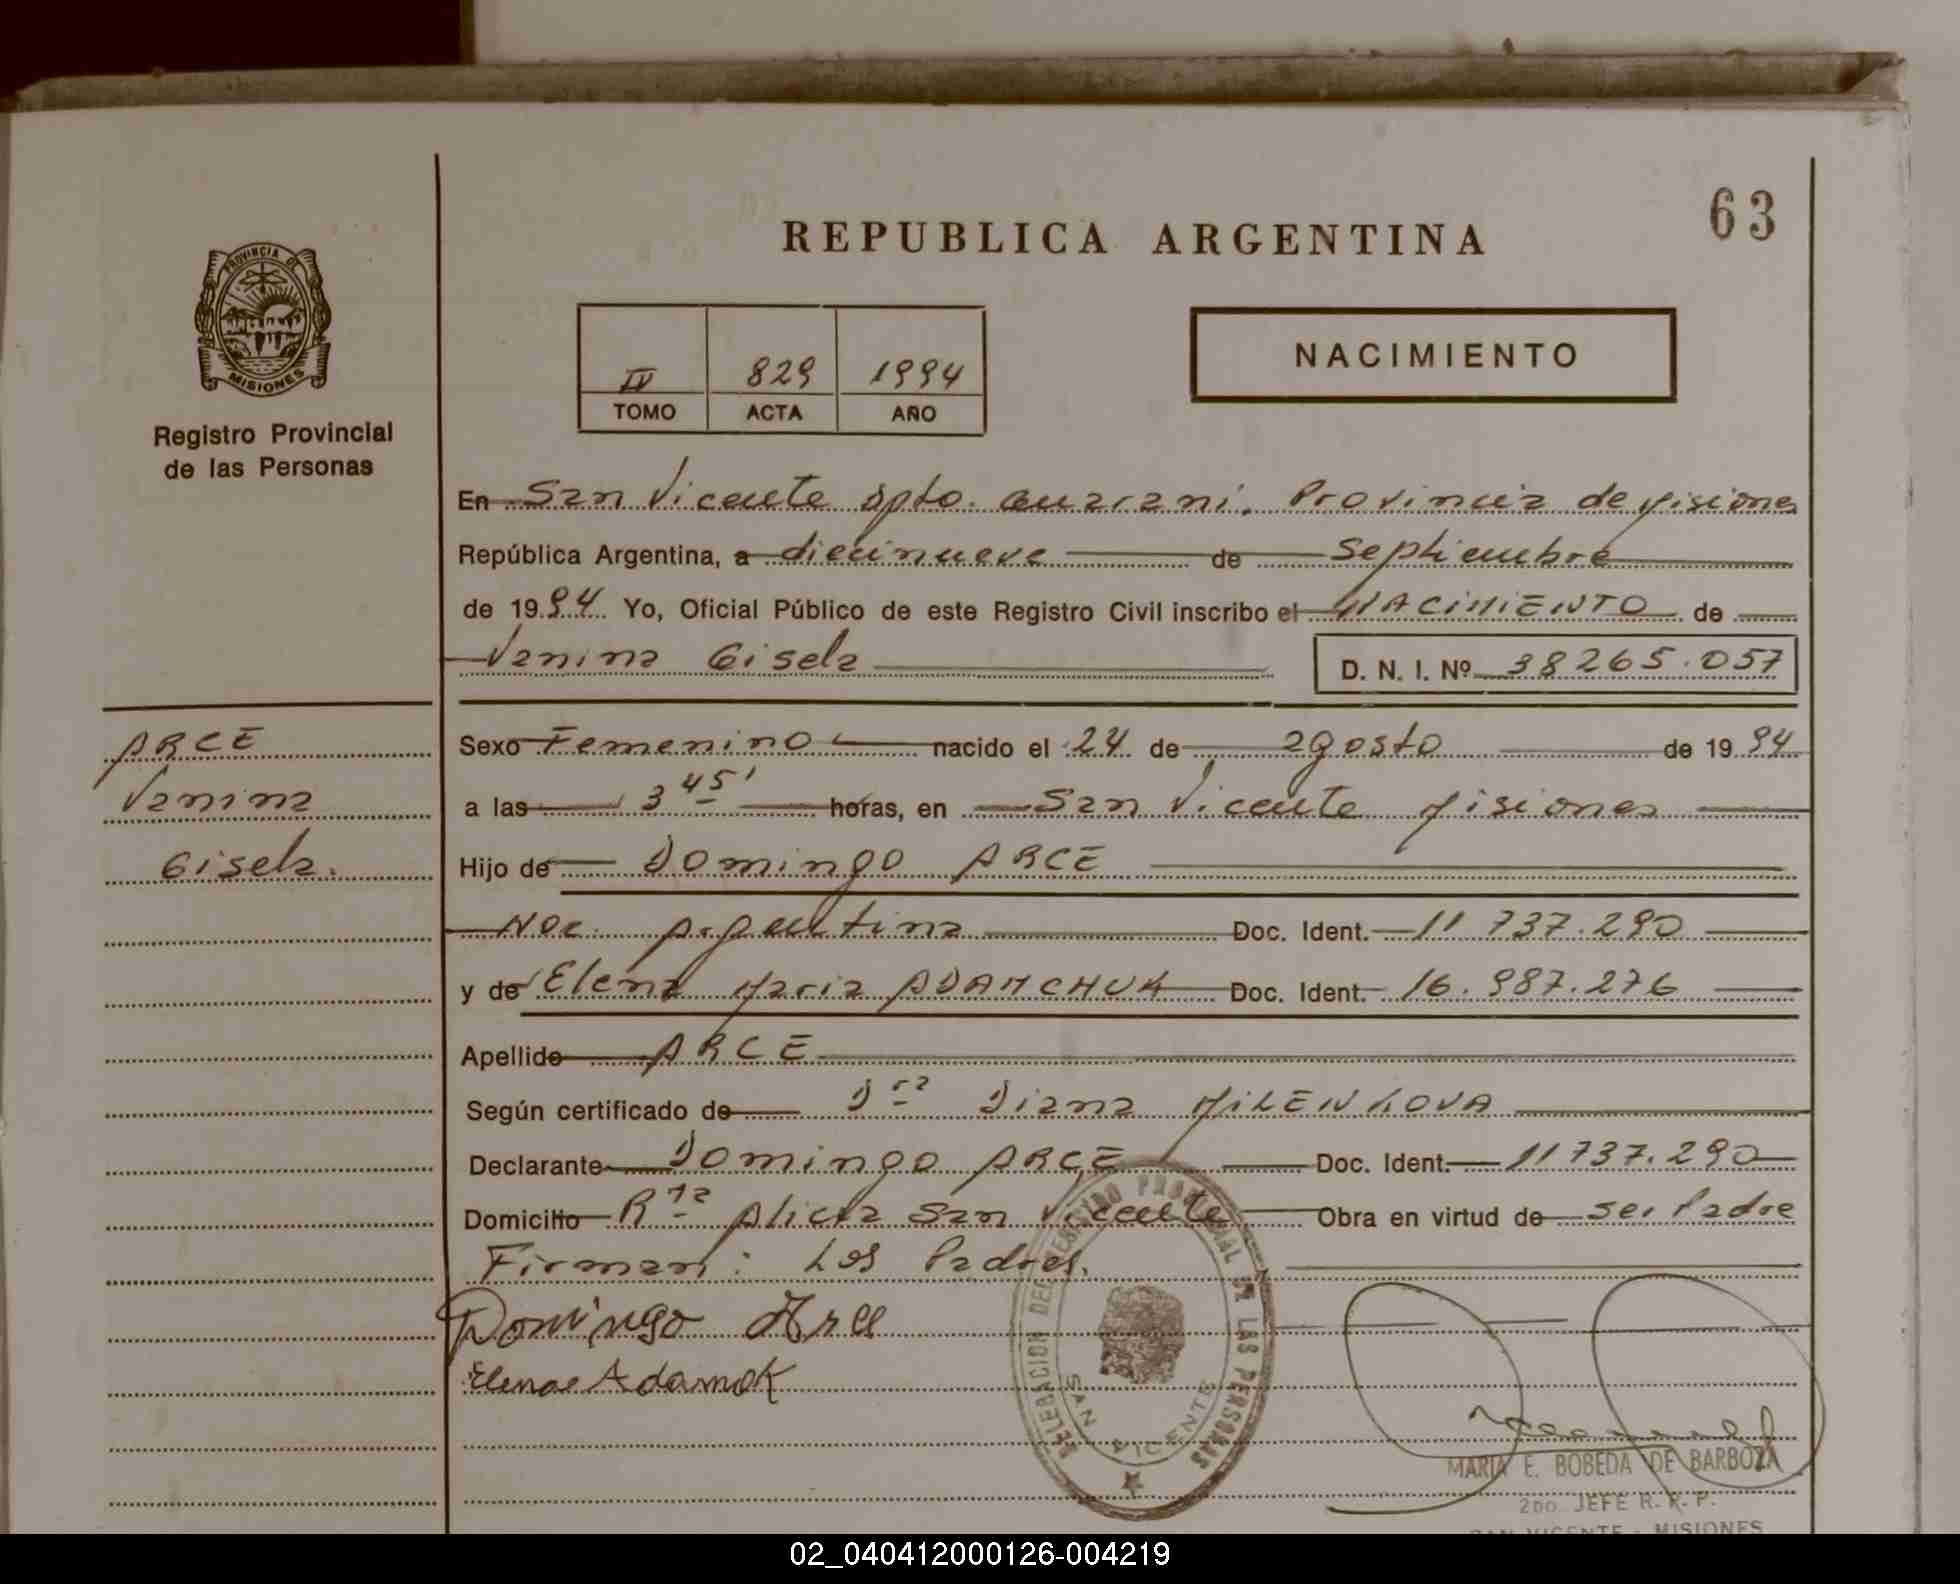 63
REPUBLICA ARGENTINA
PROVINCIA DE
MISIONES
Registro Provincial
de las Personas
IV 829 1994
TOMO ACTA AÑO
NACIMIENTO
En San Vicente Dpto. Guarani. Provincia de Misiones
República Argentina, a diecinueve de Septiembre
de 1994 Yo, Oficial Público de este Registro Civil inscribo el NACIMIENTO de
Vanina Gisela D. N. I. Nº 38265.057
ARCE
Vanina
Gisela.
Sexo Femenino nacido el 24 de agosto de 1994
a las 3 45' horas, en San Vicente Misiones
Hijo de Domingo ARCE
Nac. Argentina Doc. Ident. 11 737.290
y de Elena Maria ADAMCHUK Doc. Ident. 16.987.276
Apellido ARCE
Según certificado de Dra Diana MILENKOVA
Declarante Domingo ARCE Doc. Ident. 11737.290
Domicilio Alicia San Vicente Obra en virtud de ser Padre
Firman: Los Padres.
Domingo Arce
Elena Adamok
DELEGACION DEL REGISTRO PROVINCIAL DE LAS PERSONAS
SAN VICENTE
MARIA E. BOBEDA DE BARBOZA
2DO. JEFE R. R. P.
SAN VICENTE - MISIONES
02_040412000126-004219